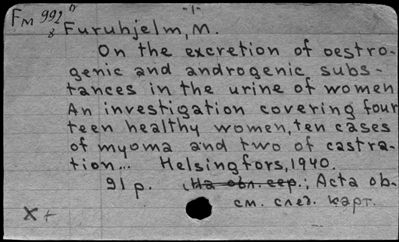 -1-
Fм 992"
8
Furuhjelm, M.
On the excretion of oestro-
genic and androgenic subs-
tances in the urine of women
An investigation covering four
teen healthy women, ten cases
of myoma and two of castra-
tion... Helsingfors, 1940.
91 p. (На обл. сер.; Acta ob-
см. след. карт.
X+